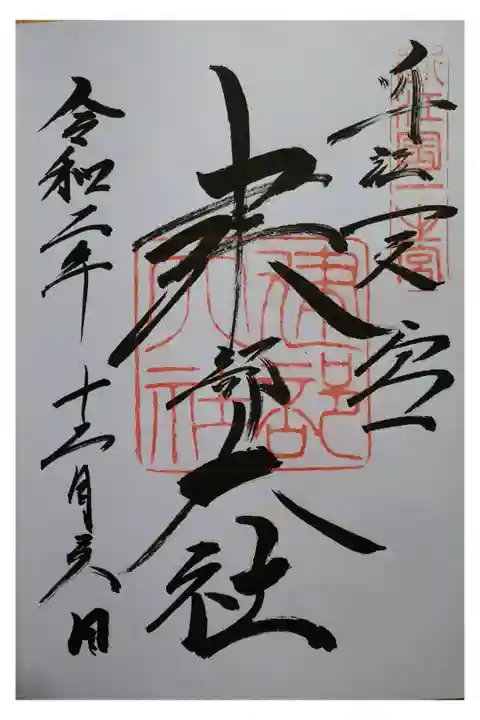 近江一之宮
建部大社
令和二年 十二月 日
近江國一之宮
建部大社